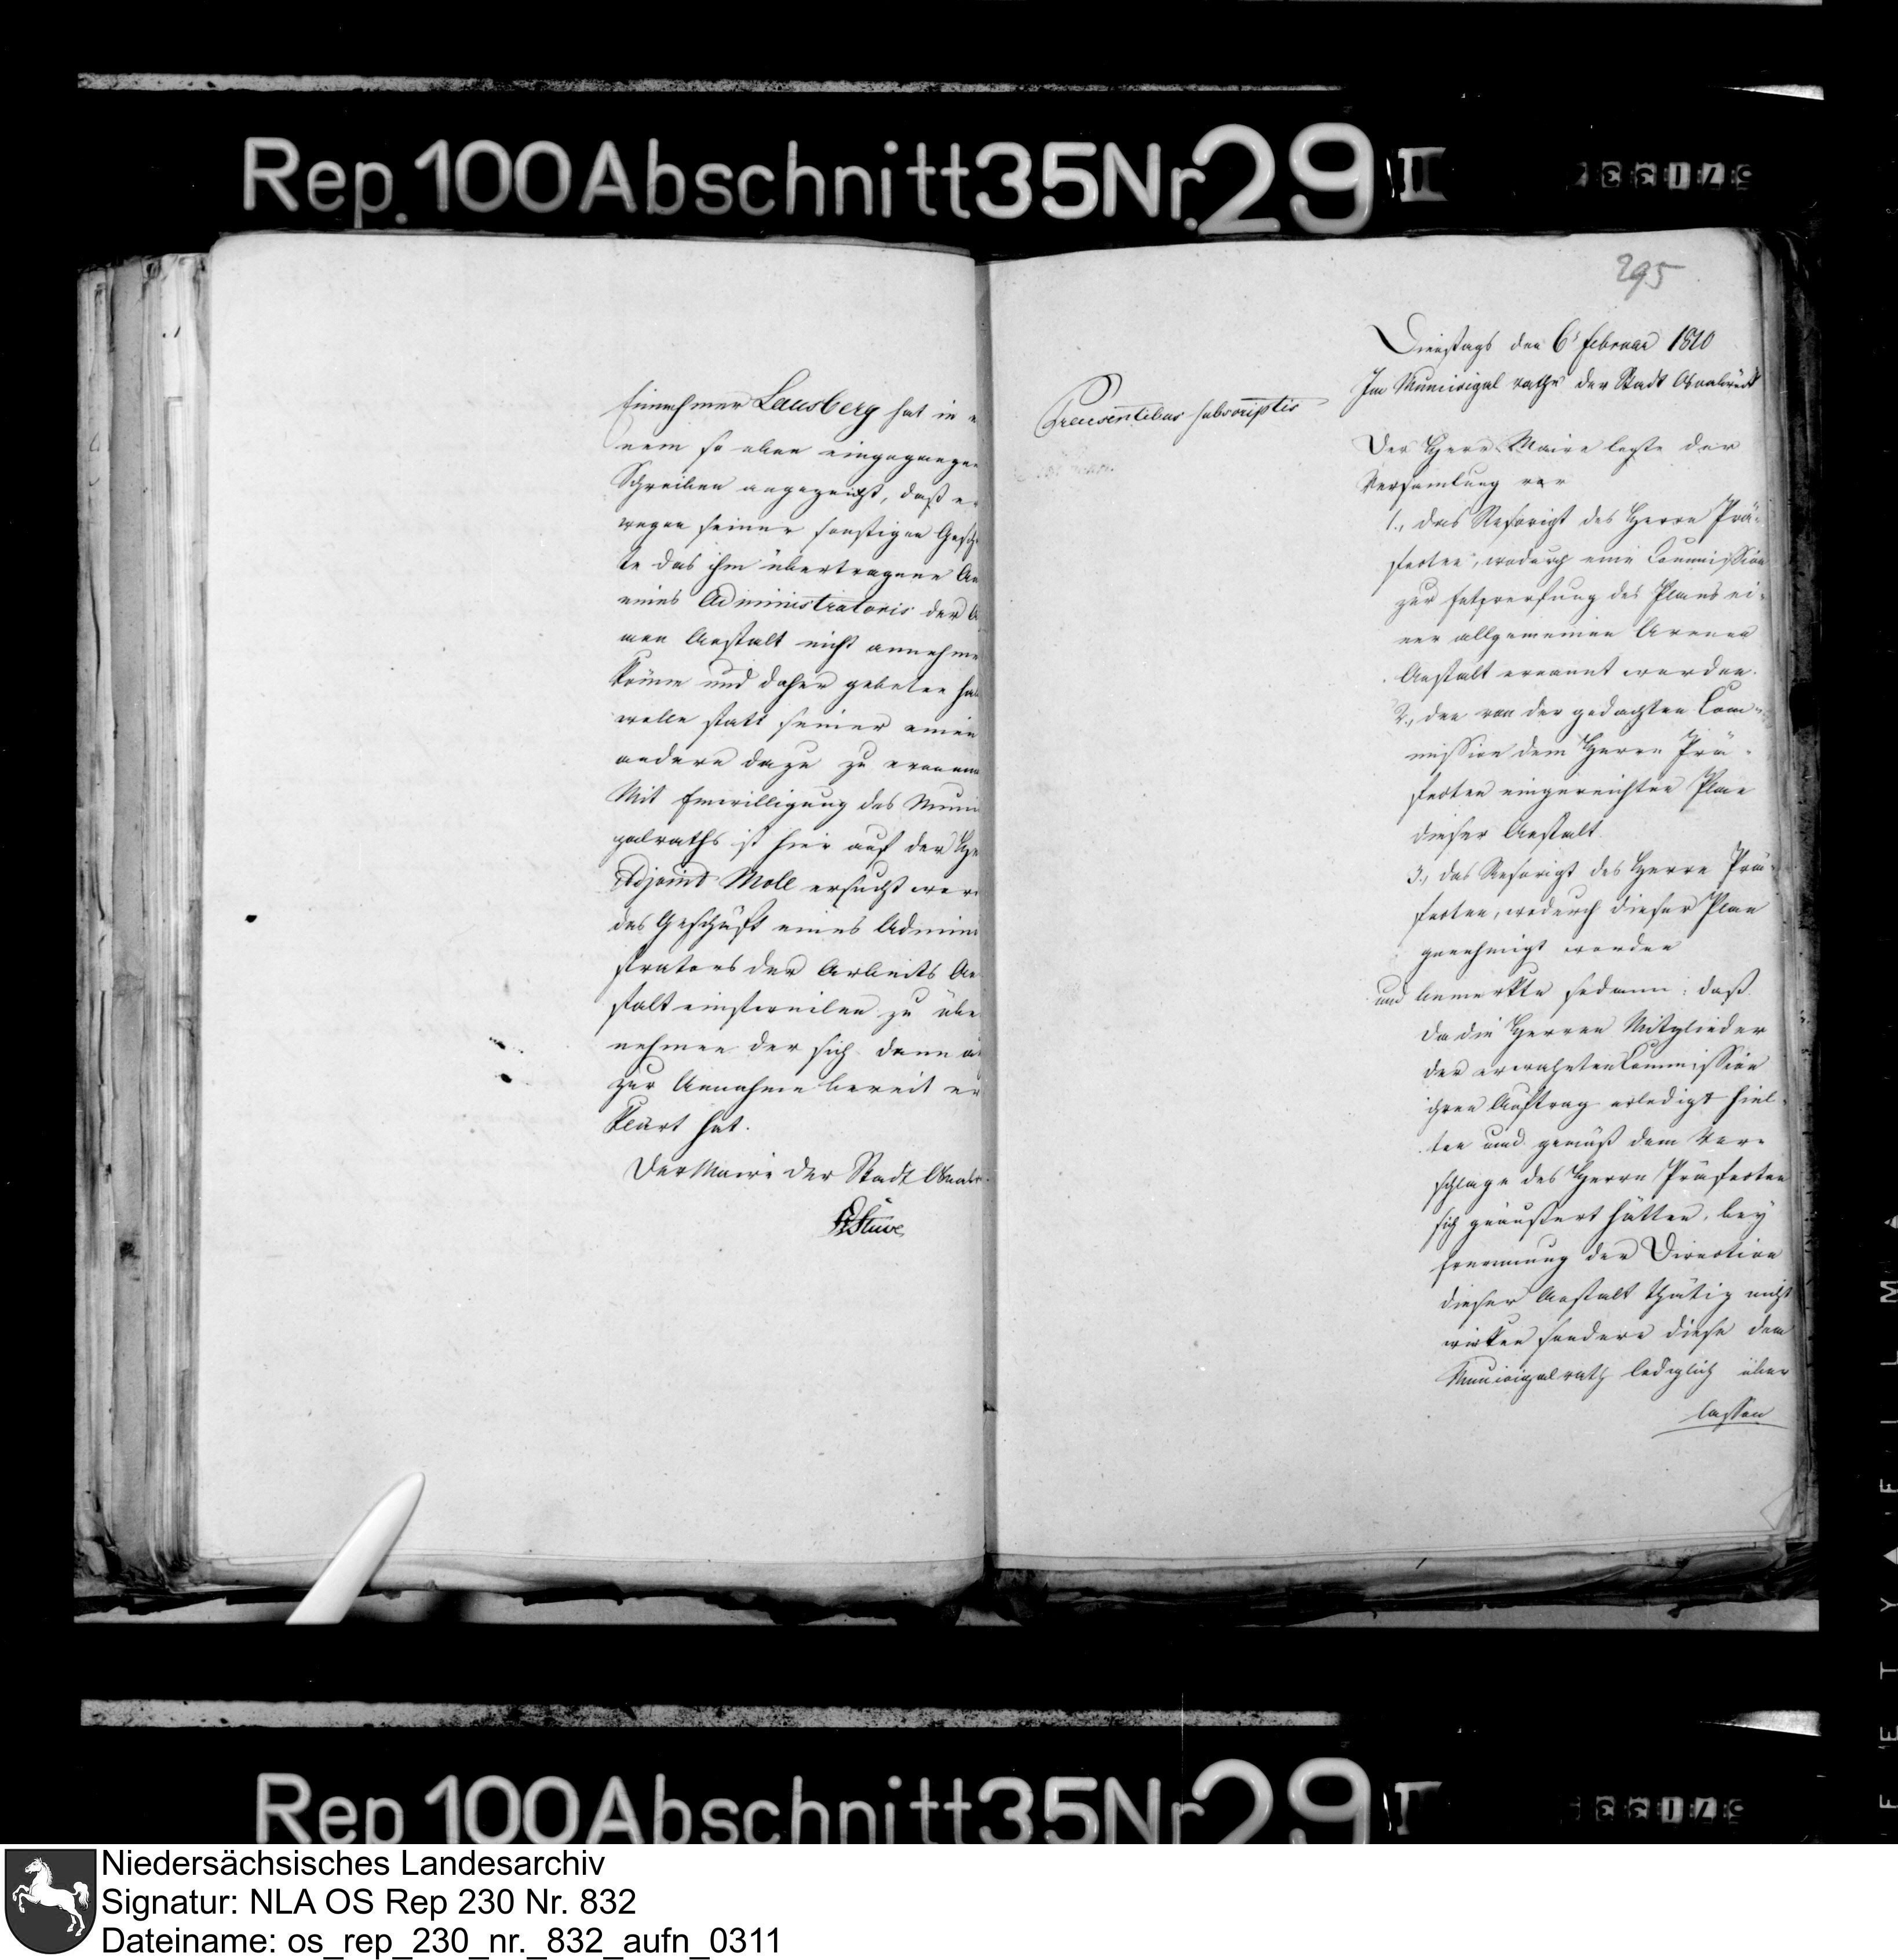 Rep. 100 Abschnitt 35 Nr. 29 II
Einnehmer Lausberg hat in e
nem so eben eingegangen
Schreiben angezeigt, daß e
wegen seiner sonstigen Gesch
te das ihm übertragene Am
eines Administratoris der A
men Anstalt nicht annehme
könne und daher gebeten hab
wolle statt seiner einen
andern dazu zu ernenn
Mit Einwilligung des Muni
palraths ist hier auf der He
Adjoint Moll ersucht wor
das Geschäft eines Admini
strators der Arbeits An
stalt einstweilen zu übe
nehmen der sich denn a
zur Annahme bereit er
klärt hat.
Der Maire der Stadt Osnabr
Stüve
295
Dienstags den 6t Februar 1810
Im Municipal rathe der Stadt Osnabrück
Praesentibus subscriptis
Der Herr Maire legte der
Versamlung vor
1., das Rescript des Herrn Prä-
fecten, wodurch eine Commission
zur Entwerfung des Plans ei-
ner allgemeinen Armen
Anstalt ernannt worden.
2., den von der gedachten Com-
mission dem Herrn Prä-
fecten eingereichten Plan
dieser Anstalt.
3., das Rescript des Herrn Prä-
fecten, wodurch dieser Plan
genehmigt worden
und bemerkte sodann: daß
da die Herren Mitglieder
der erwahnten Commission
ihren Auftrag erledigt hiel-
ten und gemäß dem Vor-
schlage des Herrn Präfecten
sich geäußert hätten, bey
Ernennung der Direction
dieser Anstalt thätig nicht
wirken sondern diese dem
Municipalrath lediglich über
lassen
Rep 100 Abschnitt 35 Nr 29 II
Niedersächsisches Landesarchiv
Signatur: NLA OS Rep 230 Nr. 832
Dateiname: os_rep_230_nr._832_aufn_0311